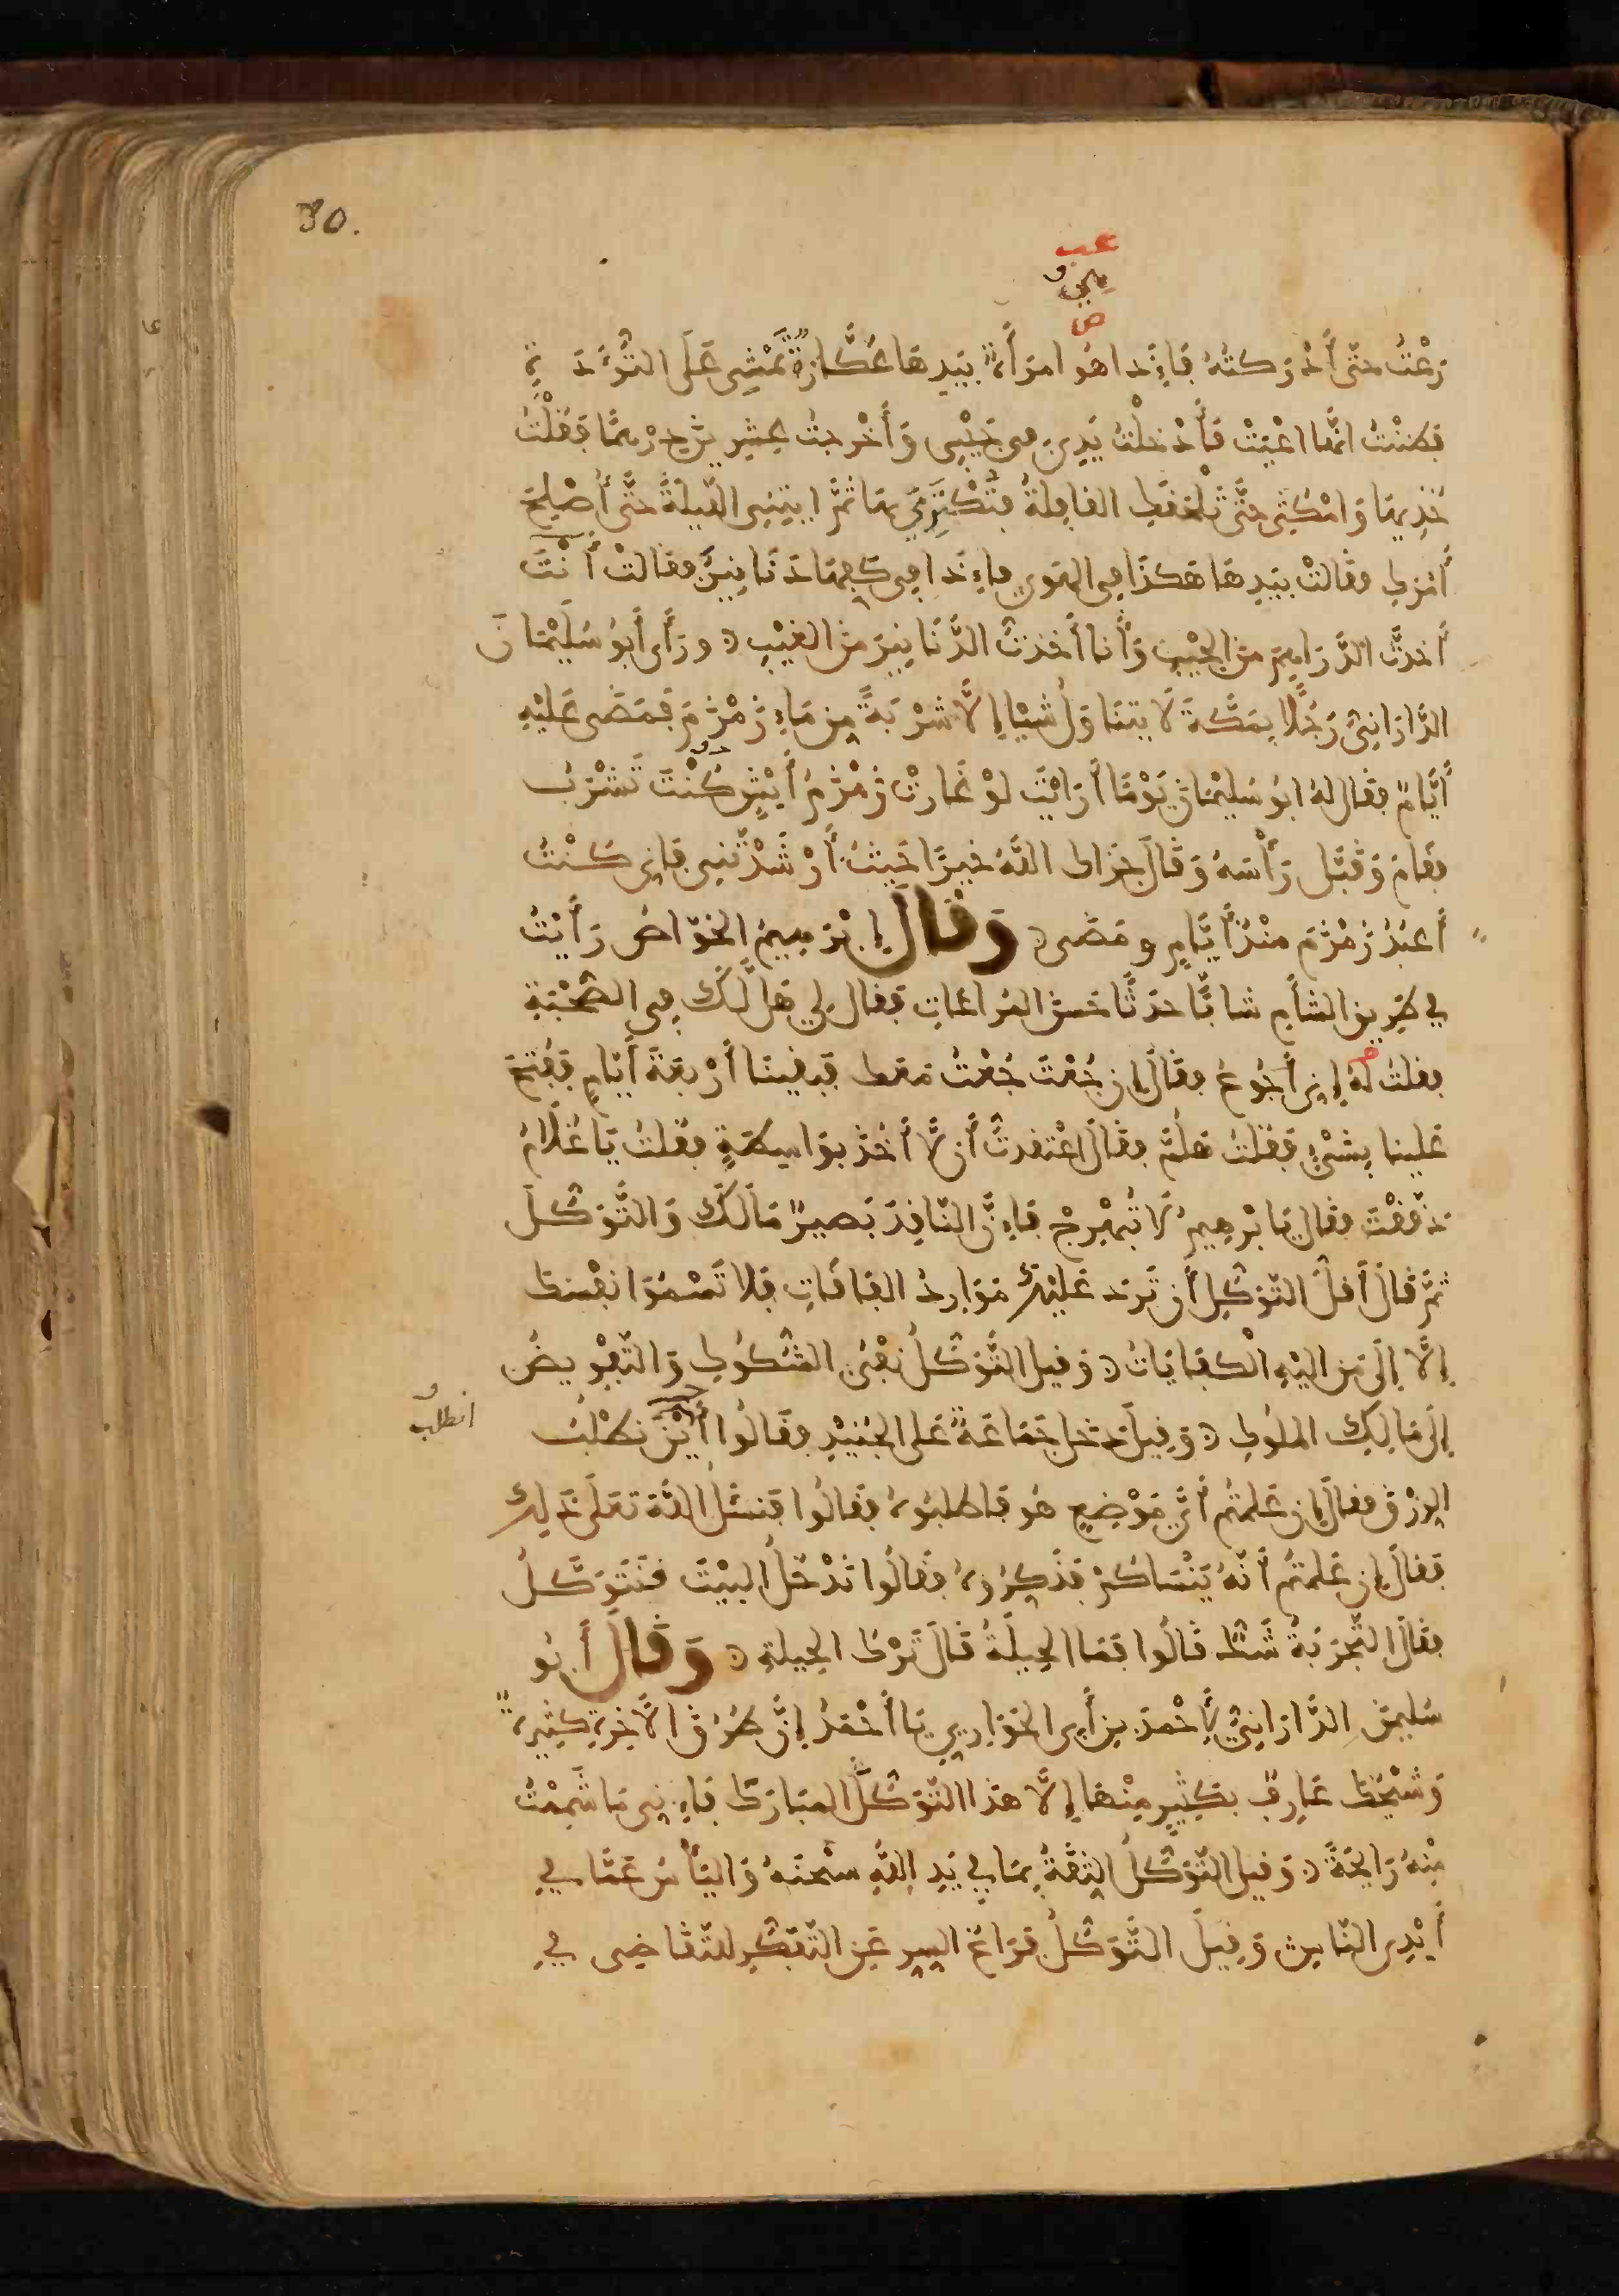 30.
عب
ص
رعْتُ حتّى أَدْرَكتُهُ فَإِذَا هُو امرَأَةٌ بِيَدِهَا عُكَّازةٌ تَمْشِى عَلَى التُّؤَدَةِ
فظننْتُ انّها اعْيَتْ فَأَدْخلْتُ يَدِى فِى جَيْبِى وَأَخْرجتُ عِشرِينَ دِرْهمًا فَقُلْتُ
خُذِيهَا وَامْكُثِى حتَّى تَلْحَقَكِ القافِلةُ فَتَكْتَرِى بهَا ثمَّ ايتِينِى اللّيلَةَ حتَّى أُصْلِحَ
أَمْرَكِ فقالتْ بِيَدِهَا هَكذَا فِى الهَوى فإِذَا فِى كَفِّهَا دَنَانِيرُ فقالتْ أَنْتَ
أَخذتَّ الدَّرَاهِمَ منَ الجَيْبِ وَأَنا أَخذتُ الدَّنَانِيرَ منَ الغَيْبِ ورَأَى أَبُو سُلَيْمَانَ
الدَّارَانِىُّ رَجُلًا بِمَكَّةَ لَا يتنَاوَلُ شيْا إِلَّا شَرْبَةً مِن مَاءِ زَمْزَمَ فَمَضَى عَلَيْهِ
أَيَّامٌ فقال لهُ ابُو سُليْمَانَ يَوْمًا أَرَايْتَ لوْ غَارتْ زَمْزَمُ أَيْشٍ كُنْتَ تَشْرَبُ
فقَامَ وَقَبَّل رَأْسَهُ وَقَالَ جَزَاكَ اللَّهُ خيرًا حَيثُ أَرْشَدْتَنِى فَإِنِى كُنْتُ
أَعبُدُ زَمْزَمَ منْذُ أَيَّامٍ ومَضَى وَقَالَ إِبْرَهِيمُ الخَوّاصُ رَأَيْتُ
فِي طَرِيقِ الشَّأمِ شابًّا حدَثًا حَسنَ المُرَاعَاتِ فَقال لِي هَل لَّكَ فِى الصُّحْبَةِ
فقلتُ لهُ إِنى أَجُوعُ فقالَ إِن جُعْتَ جُعْتُ مَعَك فبقينَا أَرْبعَةَ أَيَّامٍ فَفُتِحَ
عَلينا بِشَىْءٍ فَقُلتُ هَلُمَّ فقَالَ اعْتَقدتُ أَن لَّا أَخُذَ بوَاسِطَةٍ فقُلتُ يَا غُلَامُ
دَقّقْتَ فقال يَا ابْرهِيمُ لَا تُبَهْرِجْ فَإِنَّ النّاقِدَ بَصيرٌ مَالَكَ وَالتَّوَكُّلَ
ثمَّ قالَ أَقلُّ التّوَكُّلِ أَن تَرِدَ عَليْكَ مَوَارِدُ الفاقَاتِ فَلا تَسْمُوَا نَفْسُكَ
إِلَّا إِلَى مَن اليْهِ الْكفَايَاتُ وَقيلَ التَّوَكُّلُ نَفْىُ الشُّكُوكِ وَالتّفْوِيضُ
إِلَى مَالِكِ المُلُوكِ وَقِيلَ دَخلَ جَمَاعَةٌ عَلى الجُنَيْدِ فقَالُوا أَيْنَ نَطْلُبُ
انطلب
الرِزْقَ فقالَ إِن عَلمتُم أَىَّ مَوْضِعٍ هُو فَاطلبُوهُ فقَالُوا فنسْئَلُ اللَّهَ تعَلَى ذَلِكَ
فَقالَ إِن عَلمتُمْ أَنّهُ يَنْسَاكُمْ فَذَكِّرُوهُ فقَالُوا نَدْخُلُ البَيْتَ فَنَتَوَكَّلُ
فقَالَ التّجْرِبَةُ شَكٌّ قالُوا فَمَا الحِيلَةُ قَالَ تَرْكُ الحِيلةِ وَقَالَ أَبُو
سُليمَنَ الدَّارَانِىُّ لِأَحْمدَ بنِ أَبِى الحَوَارِيِ يَا أَحْمَدُ إِنَّ طُرُقَ الأَخِرَةِ كَثِيرَةٌ
وَشَيْخُكَ عَارِفٌ بِكثِيرٍ مِنْهَا إِلَّا هَذا التَّوَكُّلَ المبَارَكَ فَإِنِى مَا شَمِمْتُ
مِنْهُ رَايحَةً وَقيلَ التَّوَكُّلُ الثِّقَةُ بِمَا فِي يَدِ اللَّهِ سبْحنَهُ وَاليَأْسُ عَمَّا فِي
أَيْدِى النَّاسِ وَقِيلَ التَّوَكُّلُ فَرَاغُ السِّرِ عَنِ التَّفَكُّرِ للتَّقَاضِى فِي